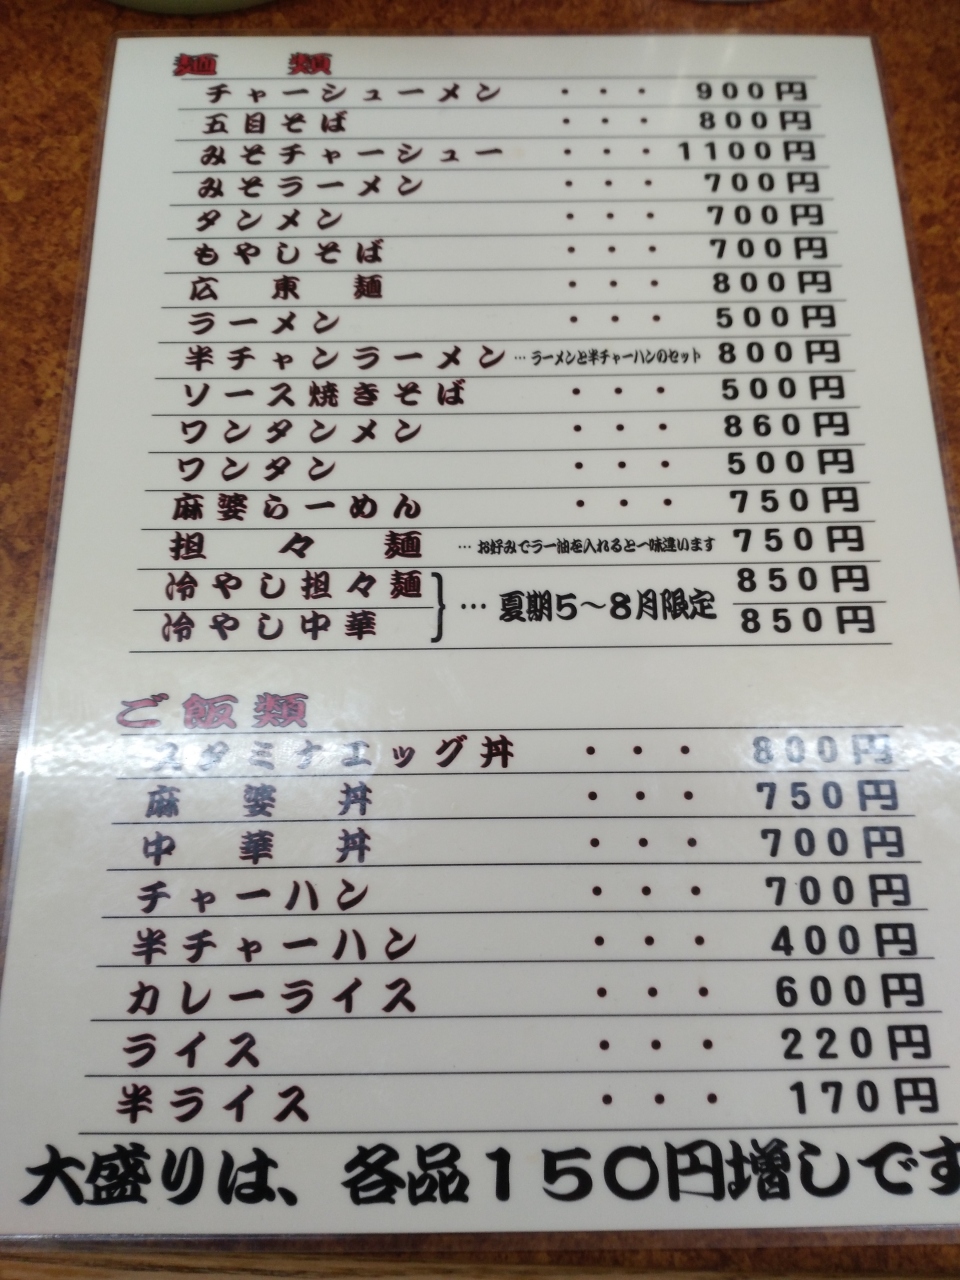 麺類
チャーシューメン ・・・ 900円
五目そば ・・・ 800円
みそチャーシュー ・・・ 1100円
みそラーメン ・・・ 700円
タンメン ・・・ 700円
もやしそば ・・・ 700円
広東麺 ・・・ 800円
ラーメン ・・・ 500円
半チャンラーメン … ラーメンと半チャーハンのセット 800円
ソース焼きそば ・・・ 500円
ワンタンメン ・・・ 860円
ワンタン ・・・ 500円
麻婆らーめん ・・・ 750円
担々麺 … お好みでラー油を入れると一味違います 750円
冷やし担々麺 850円
} … 夏期5〜8月限定
冷やし中華 850円
ご飯類
スタミナエッグ丼 ・・・ 800円
麻婆丼 ・・・ 750円
中華丼 ・・・ 700円
チャーハン ・・・ 700円
半チャーハン ・・・ 400円
カレーライス ・・・ 600円
ライス ・・・ 220円
半ライス ・・・ 170円
大盛りは、各品150円増しです